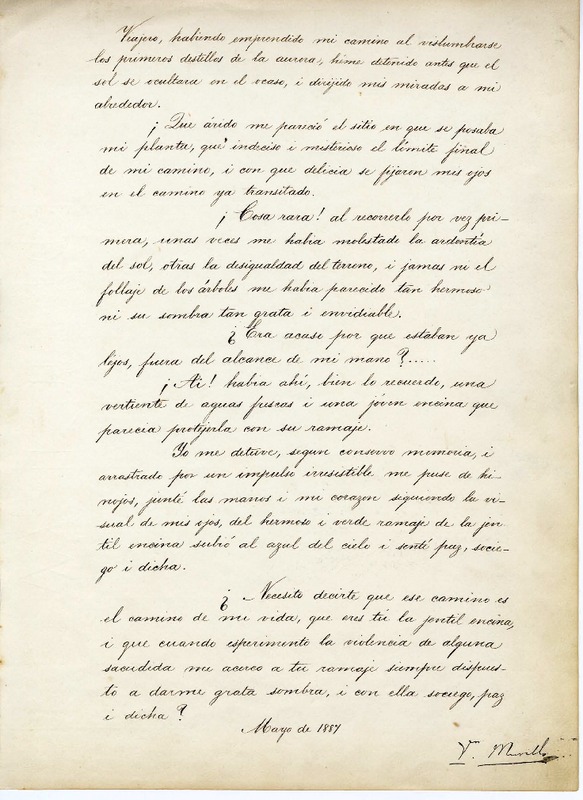 Viajero, habiendo emprendido mi camino al vislumbrarse
los primeros destellos de la aurora, héme detenido antes que el
sol se ocultara en el ocaso, i dirijido mis miradas a mi
alrededor.
¡Que árido me pareció el sitio en que se posaba
mi planta, qué indeciso i misterioso el límite final
de mi camino, i con que delicia se fijaron mis ojos
en el camino ya transitado.
¡Cosa rara! al recorrerlo por vez pri-
mera, unas veces me habia molestado la ardentía
del sol, otras la desigualdad del terreno, i jamas ni el
follaje de los árboles me habia parecido tan hermoso
ni su sombra tan grata i envidiable.
¿Era acaso por que estaban ya
lejos, fuera del alcance de mi mano?.....
¡Ai! habia ahí, bien lo recuerdo, una
vertiente de aguas frescas i una jóven encina que
parecia protejerla con su ramaje.
Yo me detuve, segun conservo memoria, i
arrastrado por un impulso irresistible me puse de hi-
nojos, junté las manos i mi corazon siguiendo la vi-
sual de mis ojos, del hermoso i verde ramaje de la jen-
til encina subió al azul del cielo i sentí paz, socie-
go i dicha.
¿Necesito decirte que ese camino es
el camino de mi vida, que eres tú la jentil encina,
i que cuando esperimento la violencia de alguna
sacudida me acerco a tu ramaje siempre dispues-
to a darme grata sombra, i con ella sociego, paz
i dicha?
Mayo de 1887
Vn Murillo